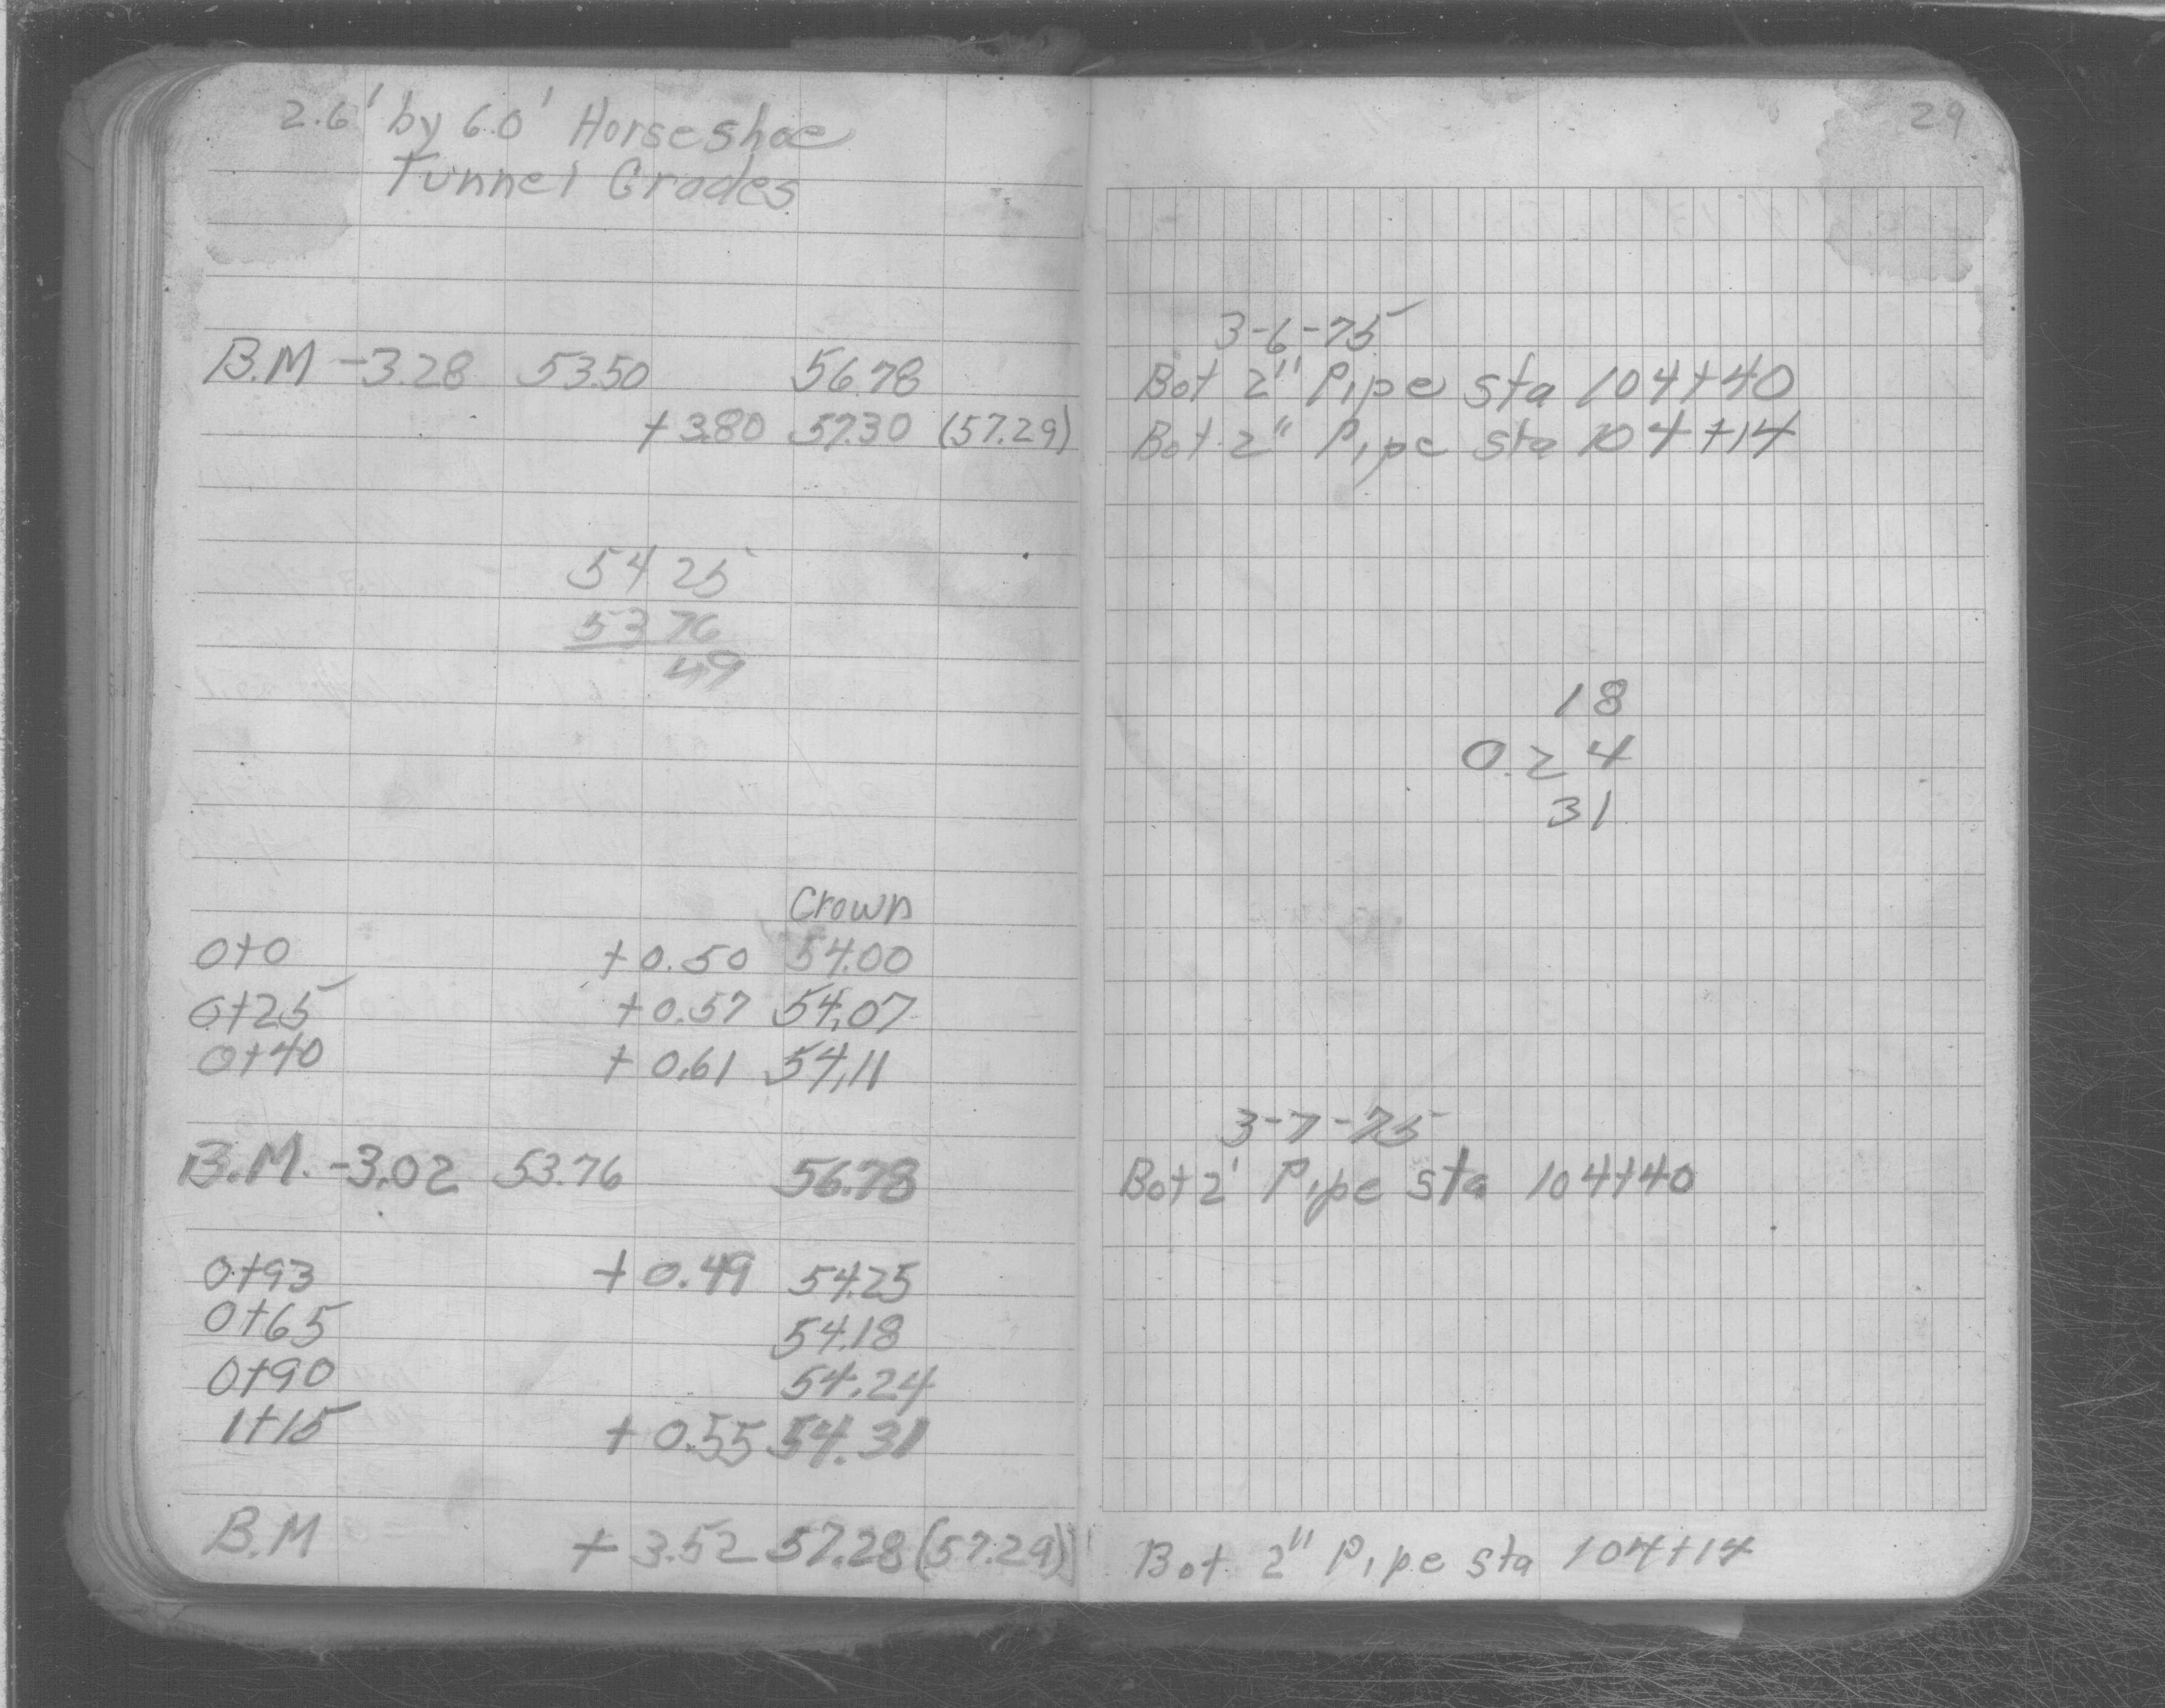 2.6' by 6.0' Horseshoe
Tunnel Grades
B.M -3.28 53.50 56.78
+3.80 57.30 (57.29)
54 25
53 76
49
Crown
0+0 +0.50 54.00
0+25 +0.57 54.07
0+40 +0.61 54.11
B.M. -3.02 53.76 56.78
0+93 +0.49 54.25
0+65 54.18
0+90 54.24
1+15 +0.55 54.31
B.M +3.52 57.28 (57.29)
29
3-6-75
Bot 2" Pipe sta 104+40
Bot 2" Pipe sta 104+14
18
0.24
31
3-7-75
Bot 2' Pipe sta 104+40
Bot 2" Pipe sta 104+14